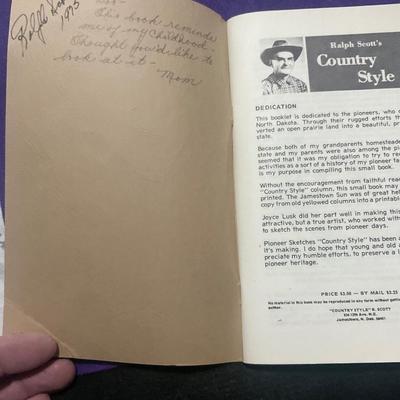 Ralph
1973
This book reminds
me of my childhood-
Thought you'd like to
look at it-
Mom
Ralph Scott's
Country
Style
DEDICATION
This booklet is dedicated to the pioneers, who
North Dakota. Through their rugged efforts
verted an open prairie land into a beautiful,
state.
Because both of my grandparents homestead
state and my parents were also among the
seemed that it was my obligation to try to
activities as a sort of a history of my pioneer
is my purpose in compiling this small book.
Without the encouragement from faithful
"Country Style" column, this small book may
printed. The Jamestown Sun was of great
copy from old yellowed columns into a
Joyce Lusk did her part well in making this
attractive, but a true artist, who worked
to sketch the scenes from pioneer days.
Pioneer Sketches "Country Style" has been
it's making. I do hope that young and old
preciate my humble efforts, to preserve a
pioneer heritage.
PRICE $3.00 — BY MAIL $3.25
No material in this book may be reproduced in any form without
author.
"COUNTRY STYLE" R. SCOTT
Jamestown, N. Dak. 58401